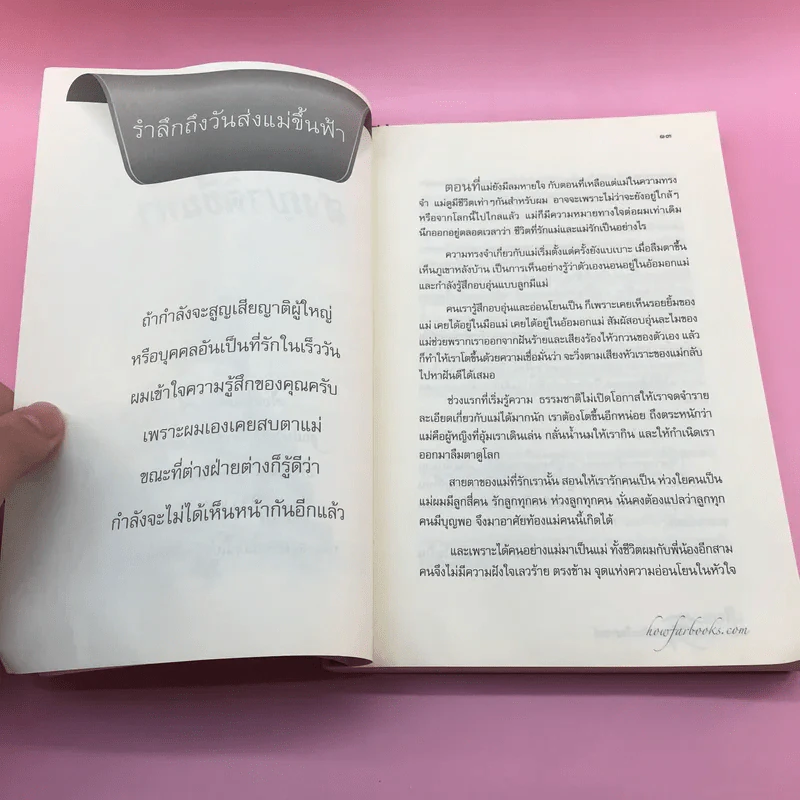 รำลึกถึงวันส่งแม่ขึ้นฟ้า
ถ้ากำลังจะสูญเสียญาติผู้ใหญ่
หรือบุคคลอันเป็นที่รักในเร็ววัน
ผมเข้าใจความรู้สึกของคุณครับ
เพราะผมเองเคยสบตาแม่
ขณะที่ต่างฝ่ายต่างก็รู้ดีว่า
กำลังจะไม่ได้เห็นหน้ากันอีกแล้ว
๑๓
ตอนที่แม่ยังมีลมหายใจ กับตอนที่เหลือแต่แม่ในความทรง
จำ แม่ดูมีชีวิตเท่าๆกันสำหรับผม อาจจะเพราะไม่ว่าจะยังอยู่ใกล้ๆ
หรือจากโลกนี้ไปไกลแล้ว แม่ก็มีความหมายทางใจต่อผมเท่าเดิม
นึกออกอยู่ตลอดเวลาว่า ชีวิตที่รักแม่และแม่รักเป็นอย่างไร
ความทรงจำเกี่ยวกับแม่เริ่มตั้งแต่ครั้งยังแบเบาะ เมื่อลืมตาขึ้น
เห็นภูเขาหลังบ้าน เป็นการเห็นอย่างรู้ว่าตัวเองนอนอยู่ในอ้อมอกแม่
และกำลังรู้สึกอบอุ่นแบบลูกมีแม่
คนเรารู้สึกอบอุ่นและอ่อนโยนเป็น ก็เพราะเคยเห็นรอยยิ้มของ
แม่ เคยได้อยู่ในมือแม่ เคยได้อยู่ในอ้อมอกแม่ สัมผัสอบอุ่นละไมของ
แม่ช่วยพรากเราออกจากฝันร้ายและเสียงร้องไห้กวนของตัวเอง แล้ว
ก็ทำให้เราโตขึ้นด้วยความเชื่อมั่นว่า จะวิ่งตามเสียงหัวเราะของแม่กลับ
ไปหาฝันดีได้เสมอ
ช่วงแรกที่เริ่มรู้ความ ธรรมชาติไม่เปิดโอกาสให้เราจดจำราย
ละเอียดเกี่ยวกับแม่ได้มากนัก เราต้องโตขึ้นอีกหน่อย ถึงตระหนักว่า
แม่คือผู้หญิงที่อุ้มเราเดินเล่น กลั่นน้ำนมให้เรากิน และให้กำเนิดเรา
ออกมาลืมตาดูโลก
สายตาของแม่ที่รักเรานั้น สอนให้เรารักคนเป็น ห่วงใยคนเป็น
แม่ผมมีลูกสี่คน รักลูกทุกคน ห่วงลูกทุกคน นั่นคงต้องแปลว่าลูกทุก
คนมีบุญพอ จึงมาอาศัยท้องแม่คนนี้เกิดได้
และเพราะได้คนอย่างแม่มาเป็นแม่ ทั้งชีวิตผมกับพี่น้องอีกสาม
คนจึงไม่มีความฝังใจเลวร้าย ตรงข้าม จุดแห่งความอ่อนโยนในหัวใจ
howfarbooks.com